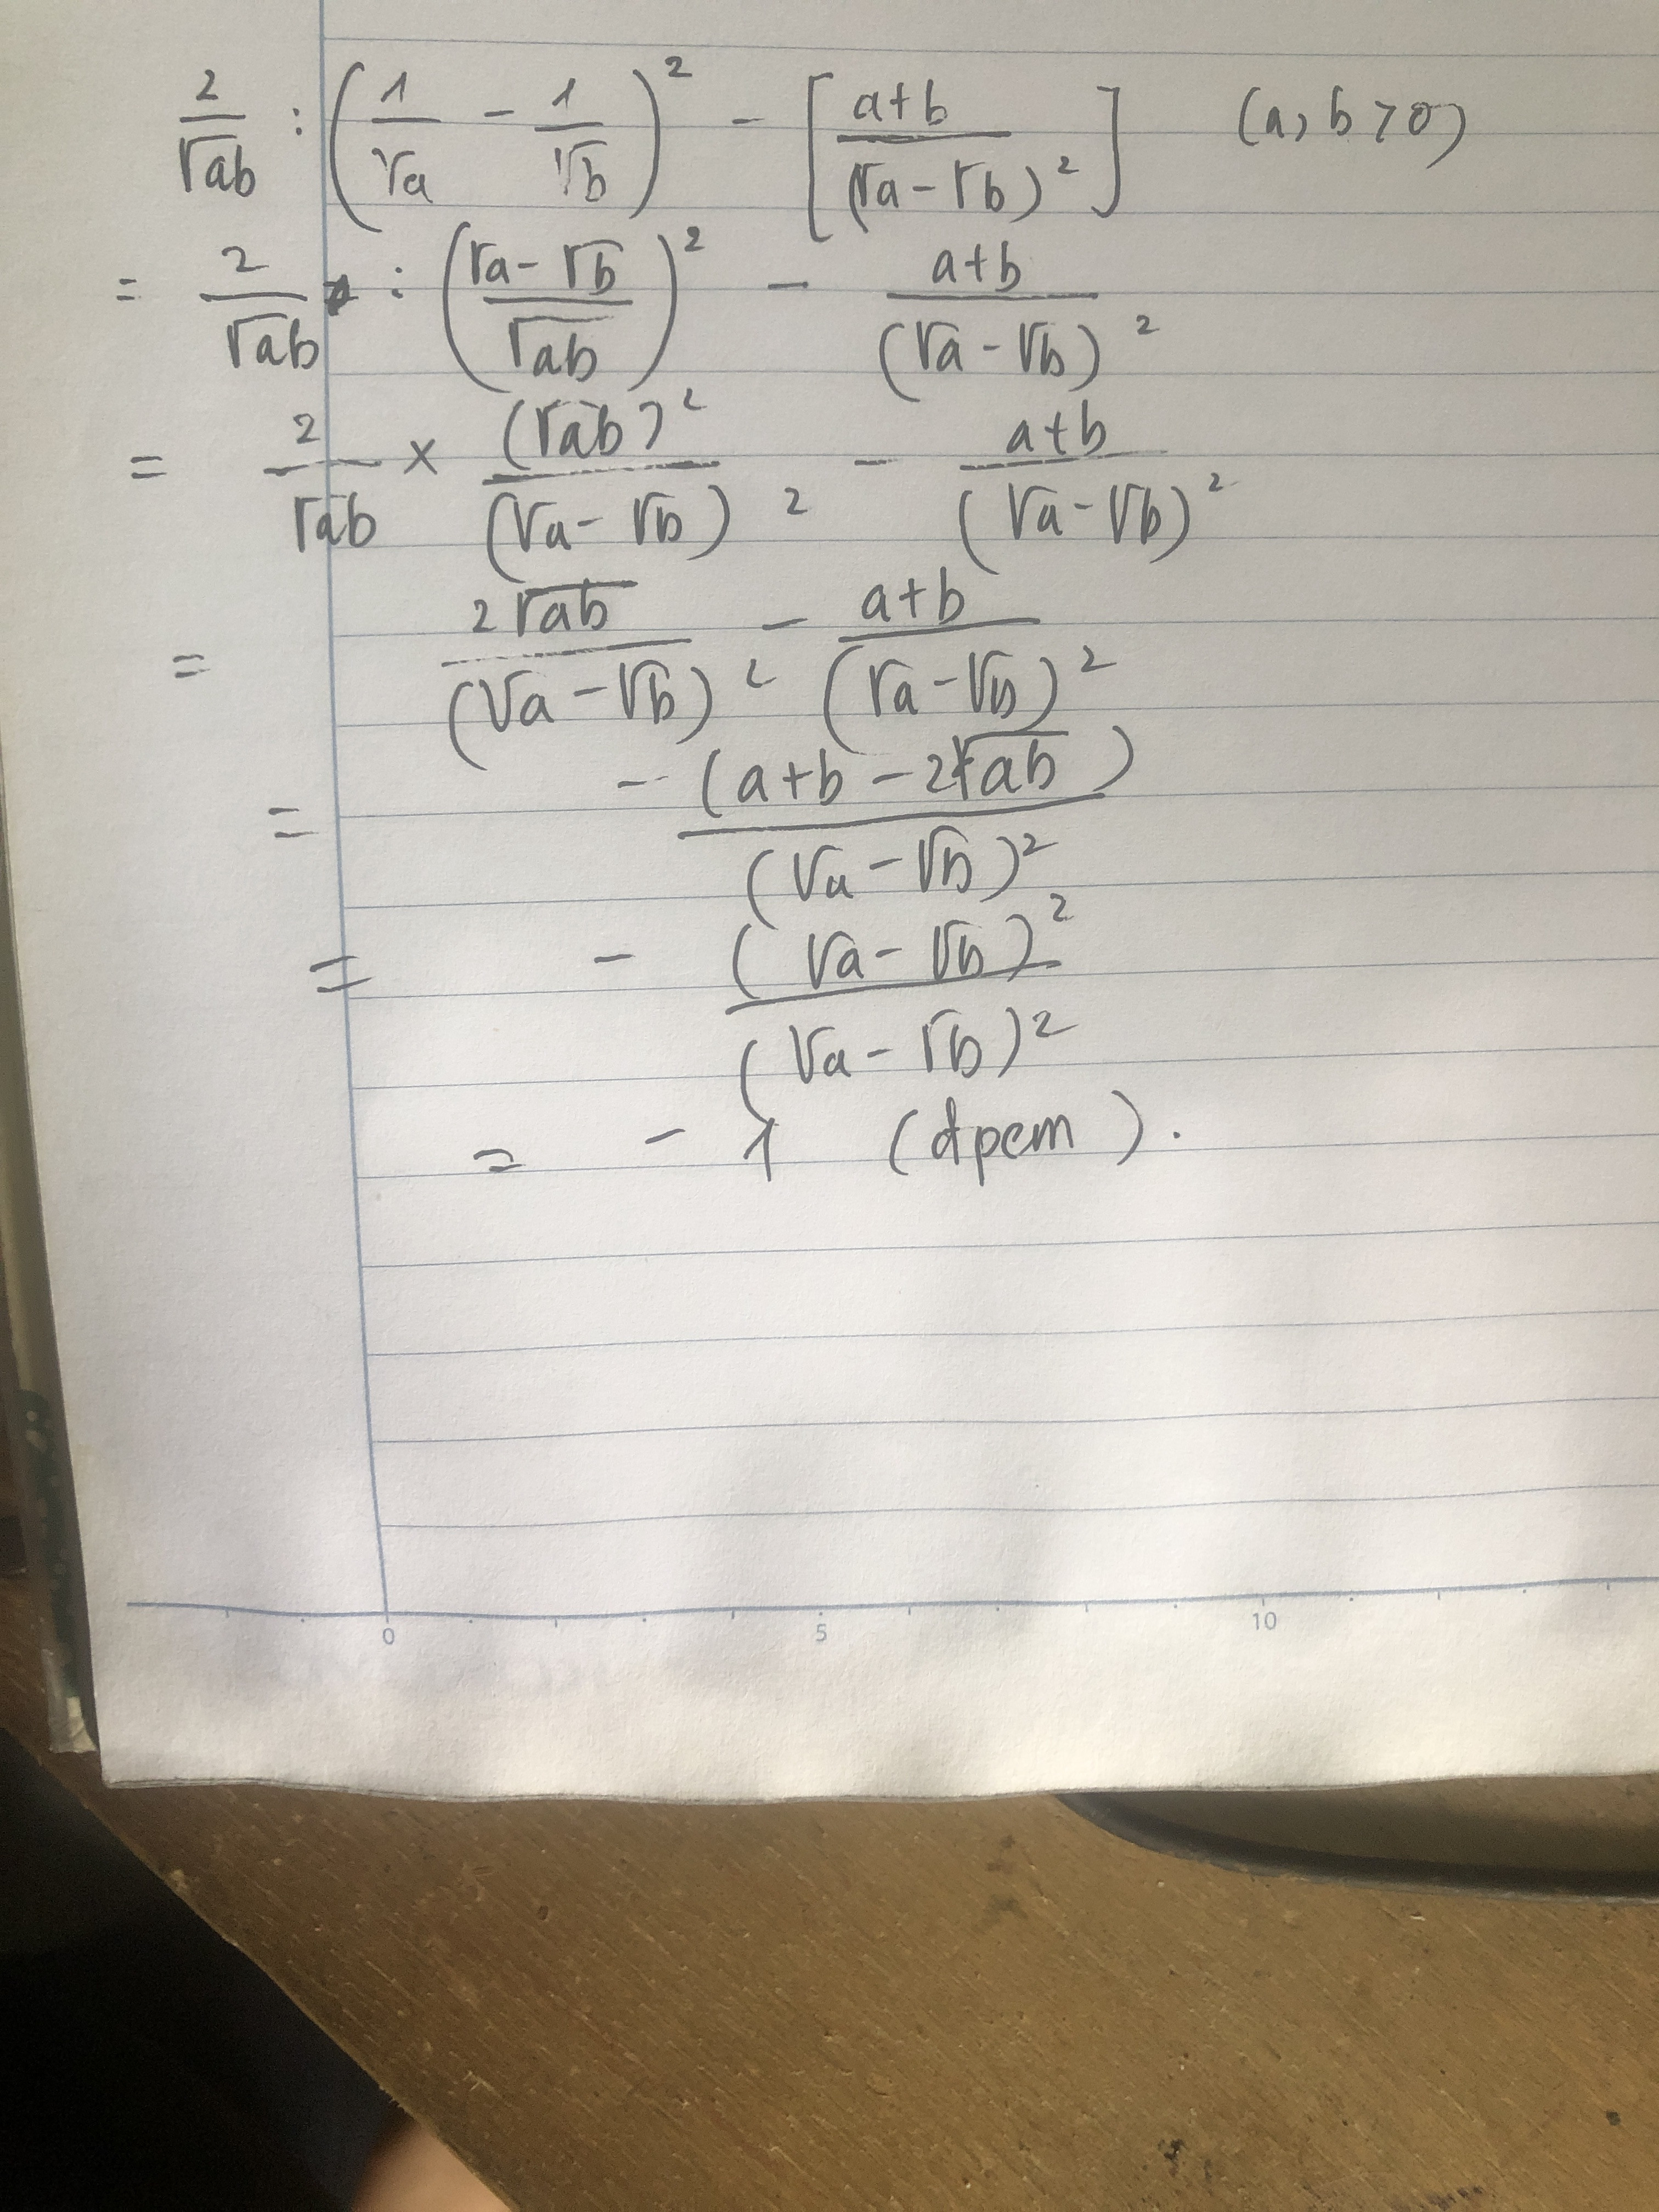 2/√ab : (1/√a - 1/√b)² - [a+b/(√a-√b)²] (a, b > 0)
= 2/√ab : (√a-√b/√ab)² - a+b/(√a-√b)²
= 2/√ab × (√ab)²/(√a-√b)² - a+b/(√a-√b)²
= 2√ab/(√a-√b)² - a+b/(√a-√b)²
= -(a+b-2√ab)/(√a-√b)²
= - (√a-√b)²/(√a-√b)²
= - 1 (đpcm).
0 5 10